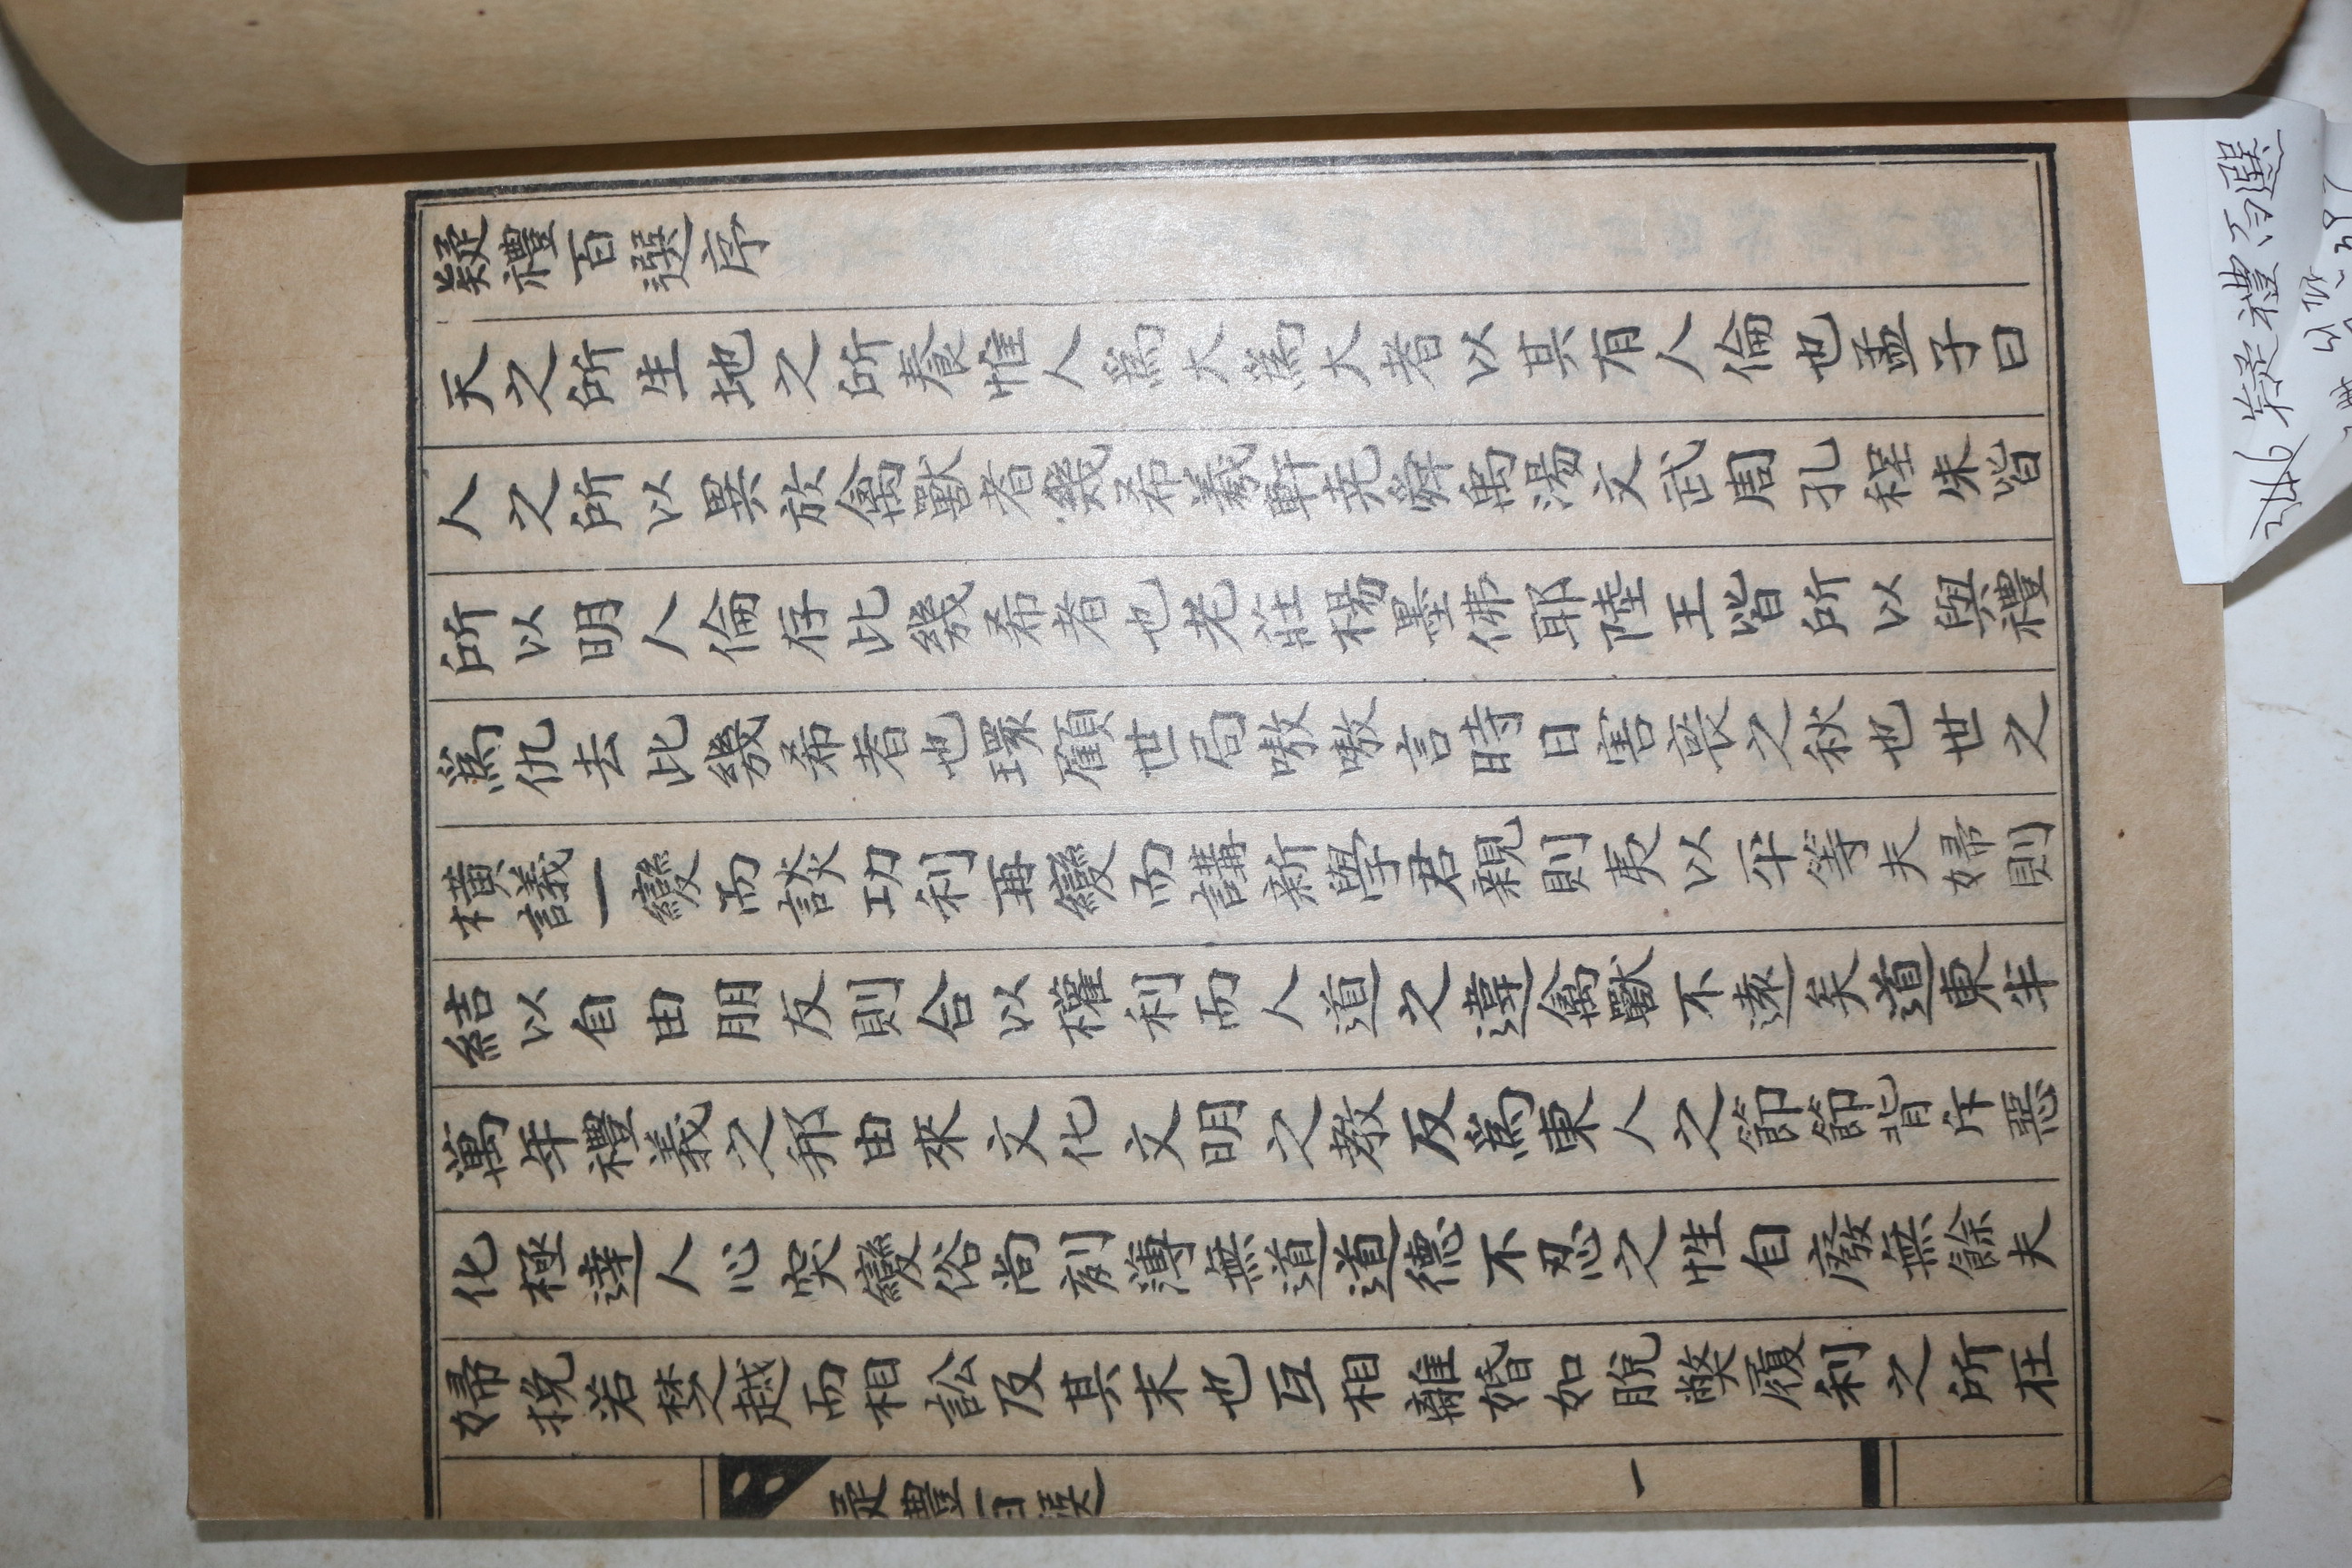 疑禮百選序
天之所生地之所養惟人爲大爲大者以其有人倫也孟子曰
人之所以異於禽獸者幾希羲軒堯舜禹湯文武周孔程朱皆
所以明人倫存此幾希者也老莊楊墨佛耶陸王皆所以與禮
爲仇去此幾希者也環顧世局嗷嗷言時日害喪之秋也世之
橫議一變而談功利再變而講新學君親則夷以平等夫婦則
結以自由朋友則合以權利而人道之違禽獸不遠矣道東半
萬年禮義之邦由來文化文明之教反爲東人之節節背斥惡
化極達人心突變俗尙刻薄無道道德不忍之性自廢無餘夫
婦挽若楚越而相訟及其末也互相離婚如脫弊履利之所在
疑禮百選
一
346 疑禮百選